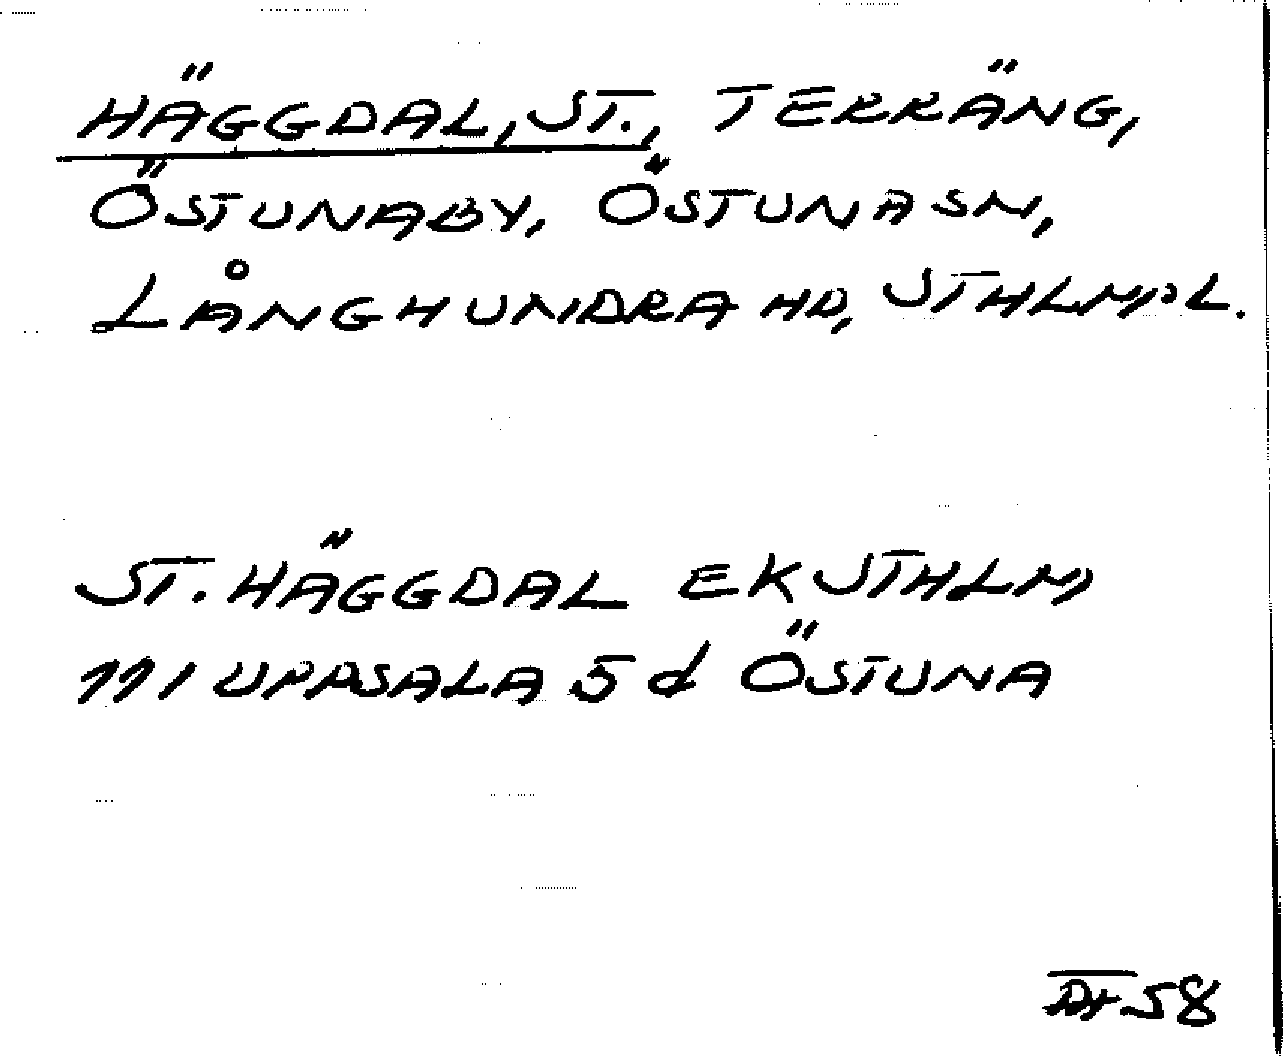 HÄGGDAL, ST., TERRÄNG,
ÖSTUNABY, ÖSTUNA SN,
LÅNGHUNDRA HD, STHLMS L.
ST. HÄGGDAL EK STHLM,
111 UPPSALA 5 d ÖSTUNA
58